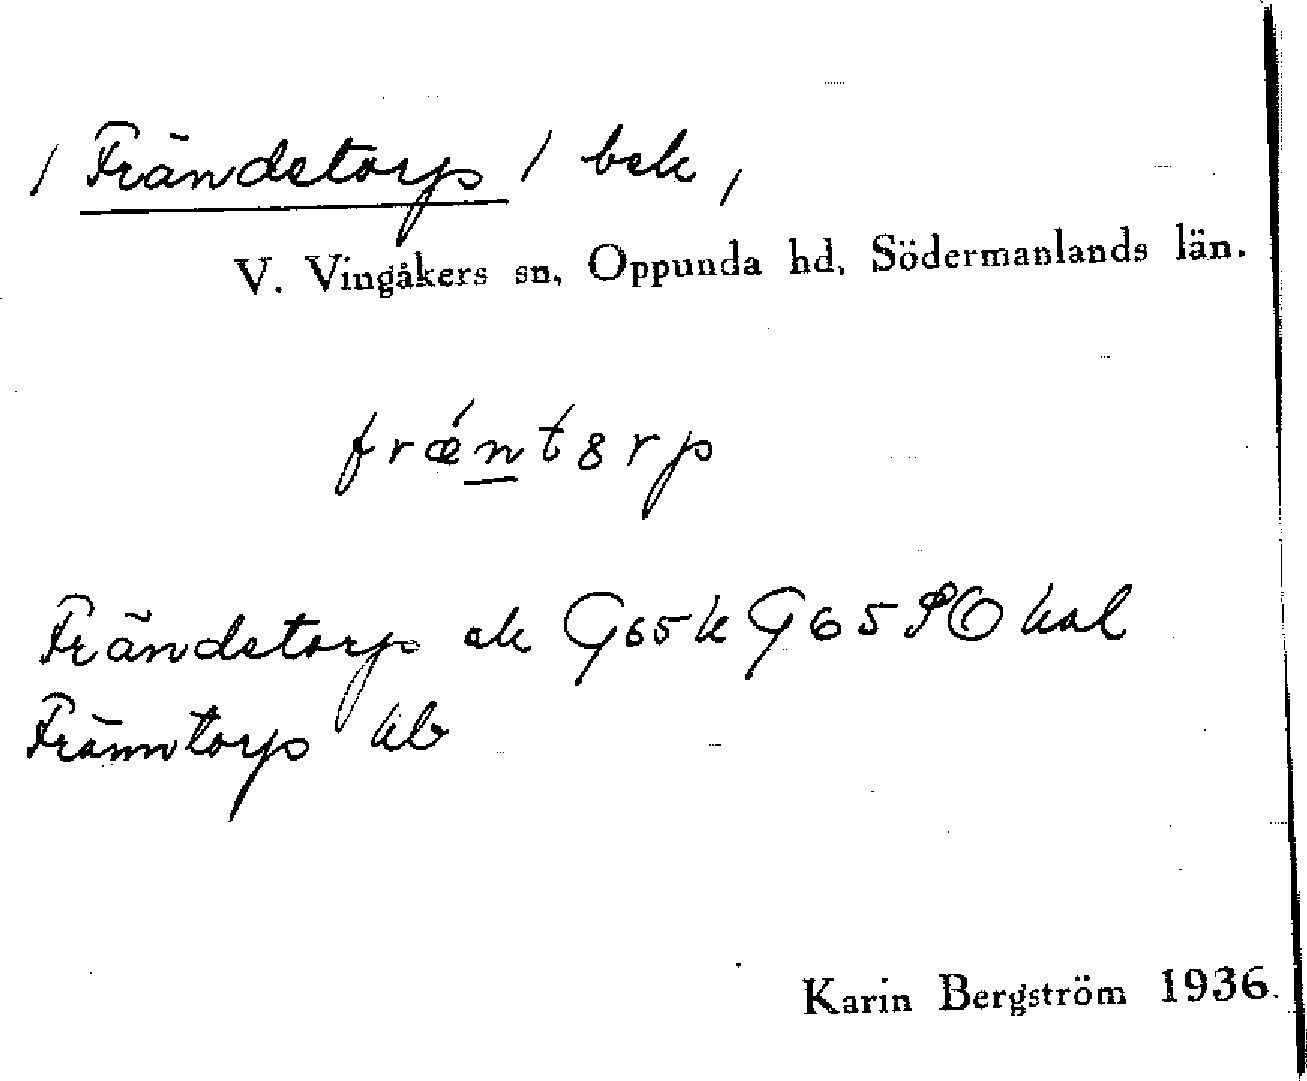 / Frändstorp / bek,
V. Vingåkers sn, Oppunda hd, Södermanlands län.
frǽnt8rp
Frändstorp ek G65k G65 SO kal
Fränntorp kb
Karin Bergström 1936.